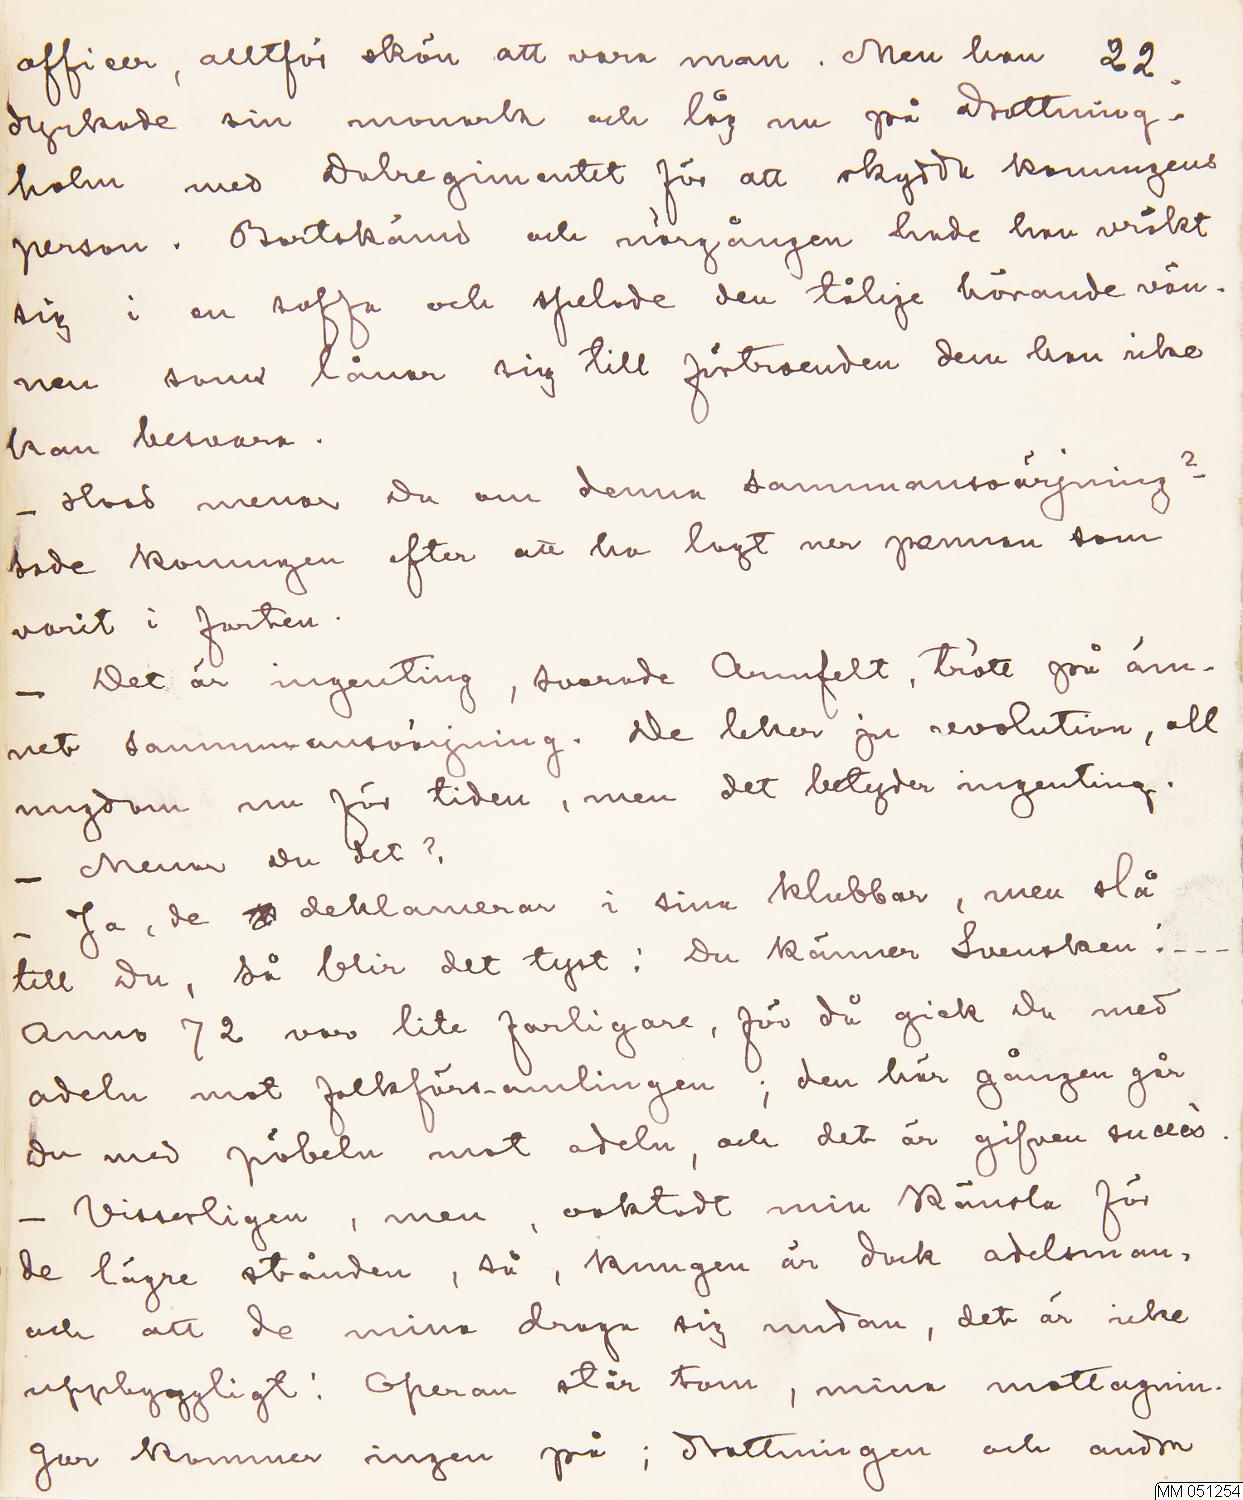 officer, alltför skön att vara man. Men han 22.
dyrkade sin monark och låg nu på Drottning-
holm med Dalregimentet för att skydda konungens
person. Bortskämd och närgången hade han vräkt
sig i en soffa och spelade den tålige hörande vän-
nen som lånar sig till förtroenden dem han icke
kan besvara.
– Hvad menar Du om denna sammansvärjning?
sade konungen efter att ha lagt ner pennan som
varit i farten.
– Det är ingenting, svarade Armfelt, trött på äm-
net sammansvärjning. De leker ju revolution, all
ungdom nu för tiden, men det betyder ingenting.
– Menar Du det?
– Ja, de deklamerar i sina klubbar, men slå
till Du, så blir det tyst! Du känner Svensken! - - -
Anno 72 var lite farligare, för då gick Du med
adeln mot folkförsamlingen; den här gången går
Du med pöbeln mot adeln, och det är gifven succès.
– Visserligen, men, oaktadt min känsla för
de lägre stånden, så, kungen är dock adelsman,
och att de mina draga sig undan, det är icke
uppbyggligt! Operan står tom, mina mottagnin-
gar kommer ingen på; Drottningen och andra
MM 051254